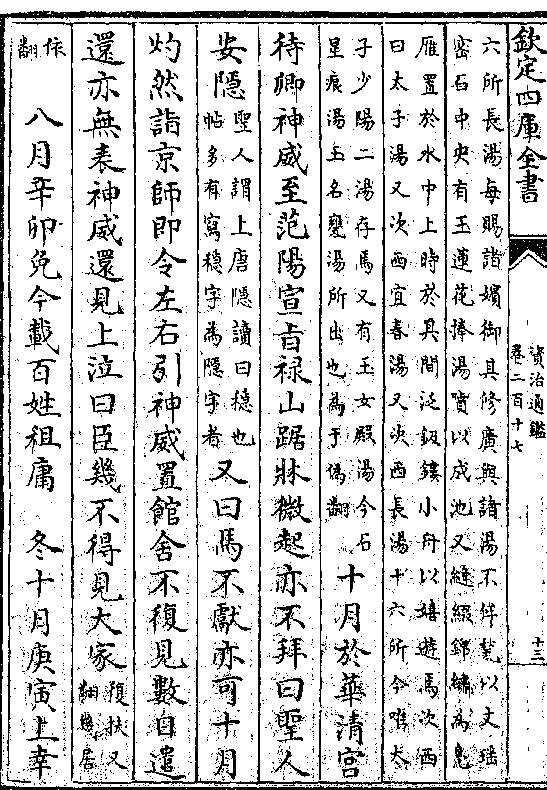 欽定四庫全書
資治通鑑
卷二百十七
十三
六所長湯每賜諸嬪御其修廣與諸湯不侔甃以文瑶
密石中央有玉蓮花捧湯噴以成池又縫綴錦繡為鳬
雁置於水中上時於其間泛鈒鏤小舟以嬉遊焉次西
曰太子湯又次西宜春湯又次西長湯十六所今唯太
子少陽二湯存焉又有玉女殿湯今石
星痕湯玉名甕湯所出也為于偽翻
十月於華清宮
待卿神威至范陽宣旨禄山踞牀微起亦不拜曰聖人
安隠
聖人謂上唐隠讀曰穏也
帖多有寫穏字為隠字者
又曰馬不獻亦可十月
灼然詣京師即令左右引神威置館舍不復見數日遣
還亦無表神威還見上泣曰臣幾不得見大家
復扶又
翻幾居
依
翻
八月辛卯免今載百姓租庸 冬十月庚寅上幸